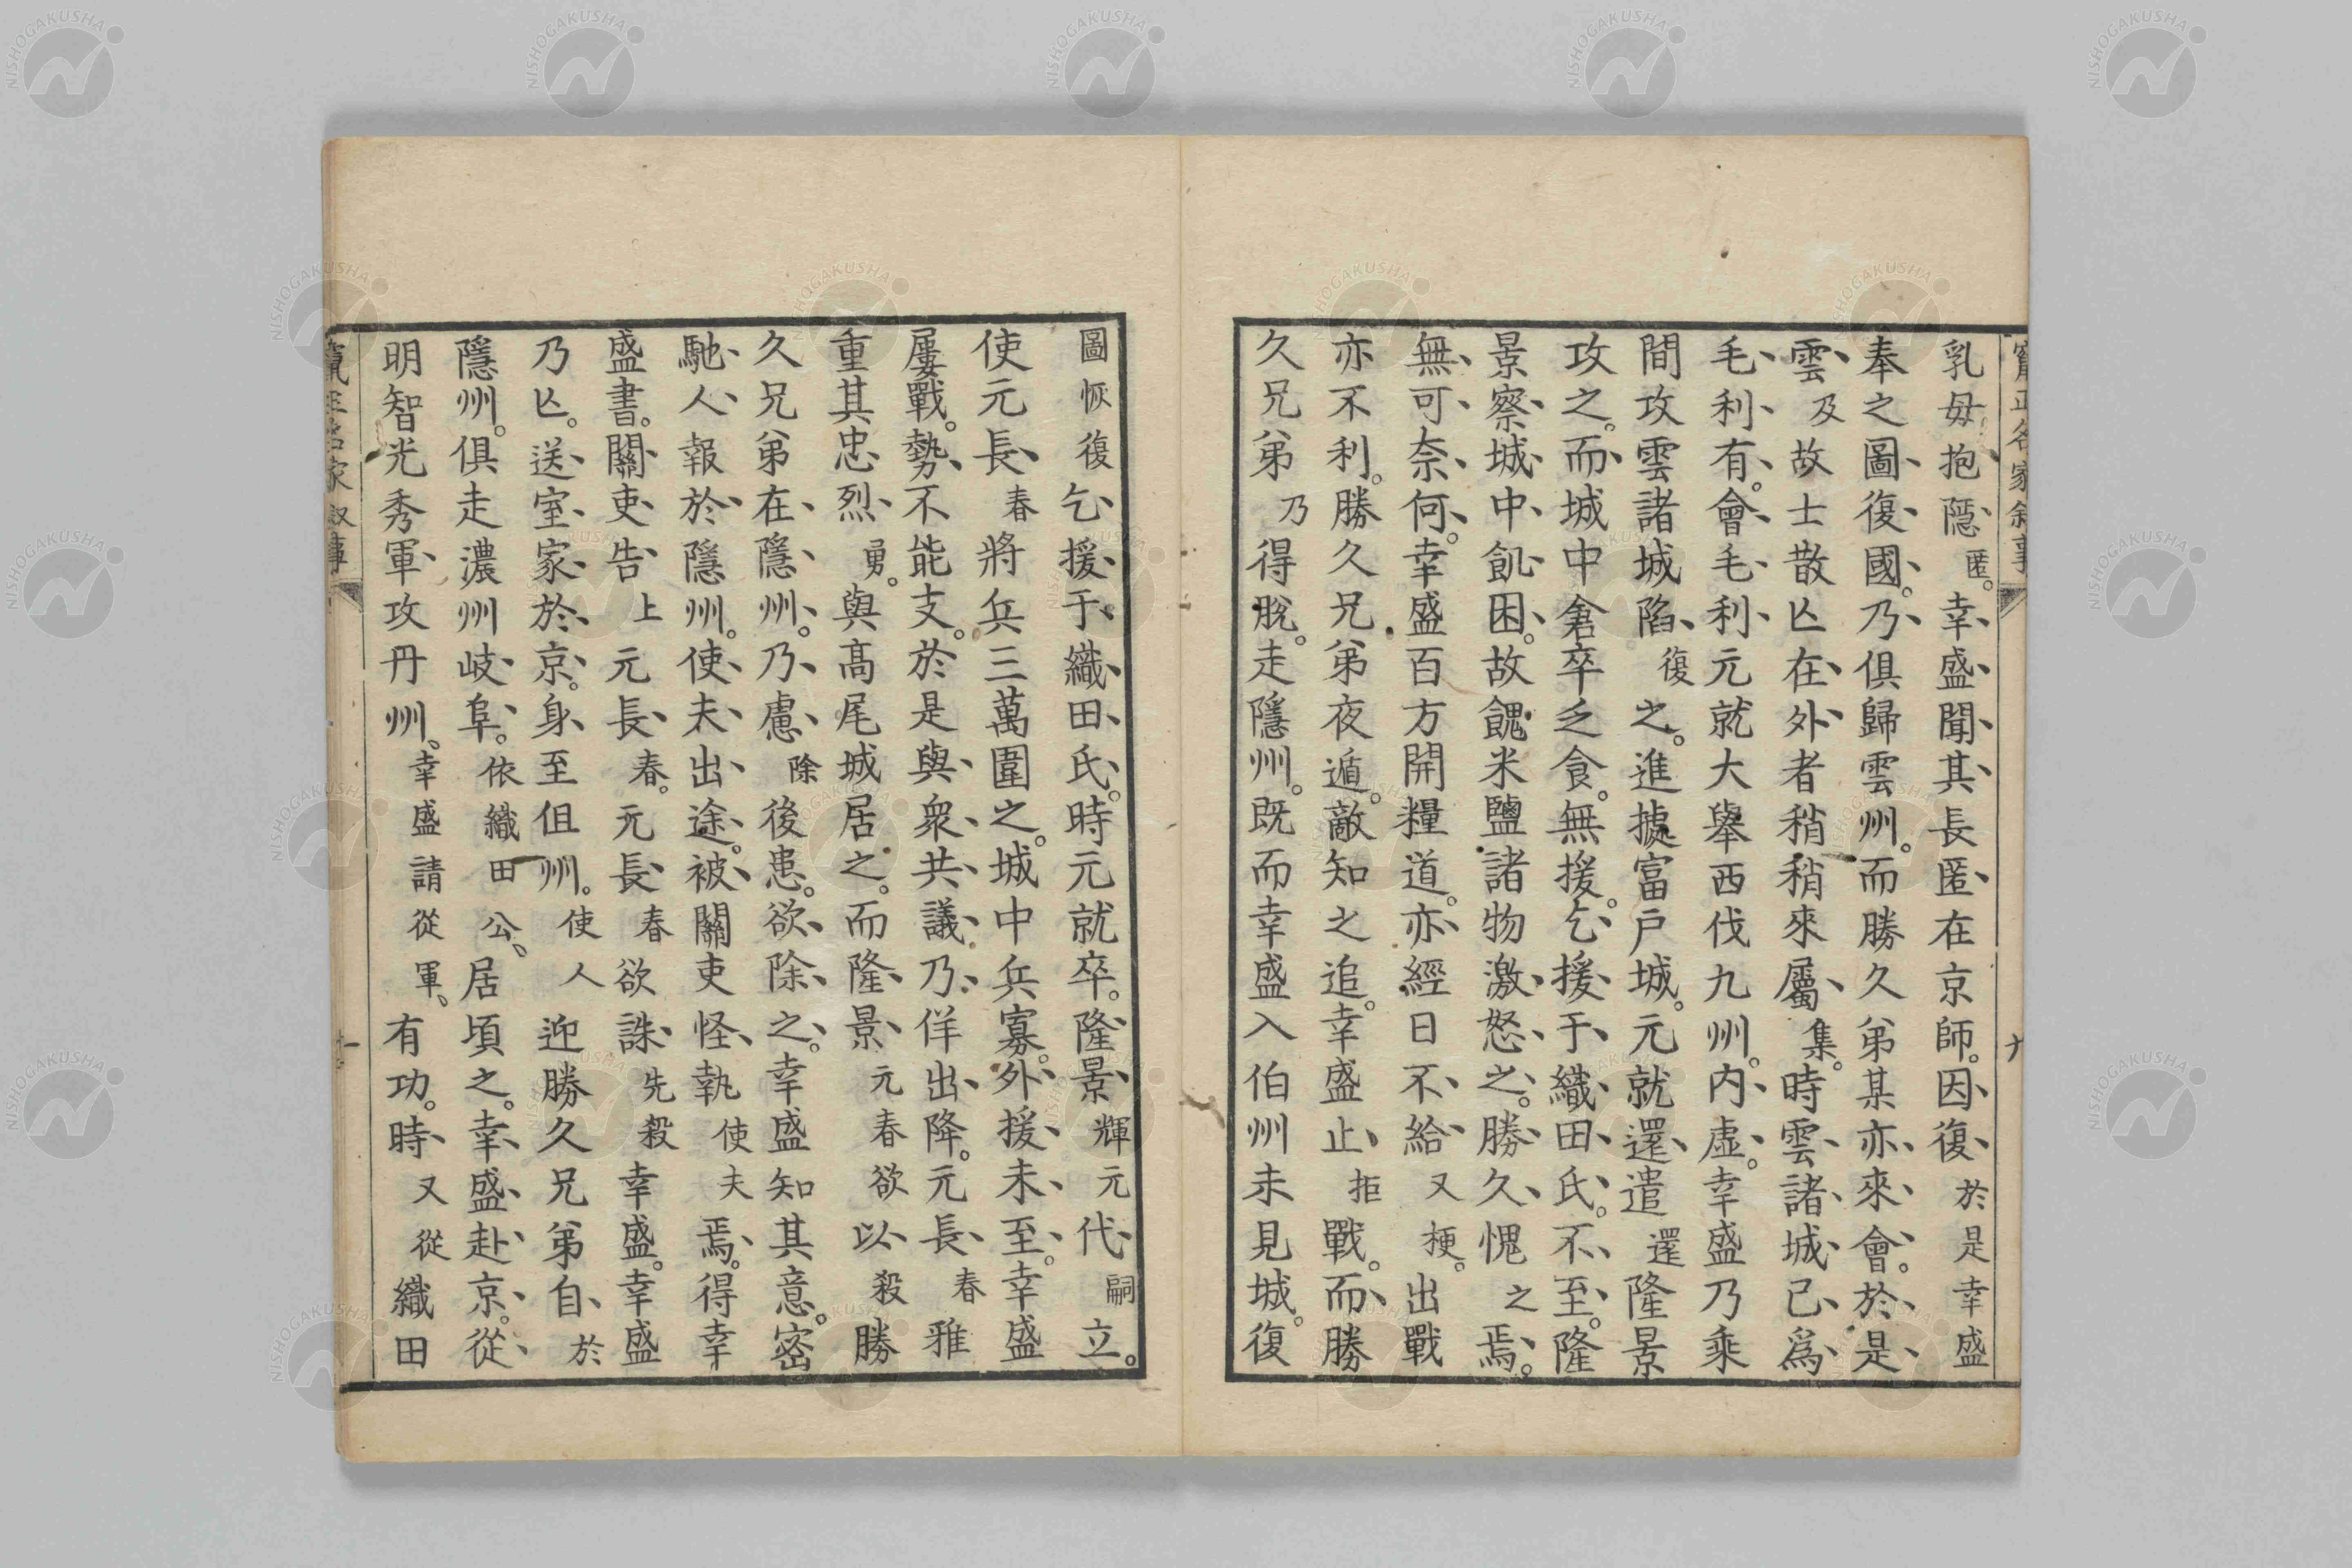 乳母抱隱匿。幸盛聞其長匿在京師。因復於是幸盛
奉之圖復國。乃俱歸雲州。而勝久弟某亦來會。於是
雲及故士散亾在外者稍稍來屬集。時雲諸城已爲
毛利有。會毛利元就大擧西伐九州。内虛。幸盛乃乘
間攻雲諸城陷復之。進據富戸城。元就還遣還隆景
攻之。而城中倉卒乏食。無援。乞援于織田氏。不至。隆
景察城中飢困。故餽米鹽諸物激怒之。勝久愧之焉。
無可奈何。幸盛百方開糧道。亦經日不給又梗。出戰
亦不利。勝久兄弟夜遁。敵知之追。幸盛止拒戰。而勝
久兄弟乃得脫。走隱州。既而幸盛入伯州未見城。復
圖恢復乞援于織田氏。時元就卒。隆景輝元代嗣立。
使元長春將兵三萬圍之。城中兵寡。外援未至。幸盛
屢戰。勢不能支。於是與衆共議。乃佯出降。元長春雅
重其忠烈勇。與高尾城居之。而隆景元春欲以殺勝
久兄弟在隱州。乃慮除後患。欲除之。幸盛知其意。密
馳人報於隱州。使夫出途。被關吏怪執使夫焉。得幸
盛書。關吏告上元長春。元長春欲誅先殺幸盛。幸盛
乃亾。送室家於京。身至但州。使人迎勝久兄弟自於
隱州。俱走濃州岐阜。依織田公、居頃之。幸盛赴京。從
明智光秀軍攻丹州。幸盛請從軍、有功。時又從織田
NISHOGAKUSHA